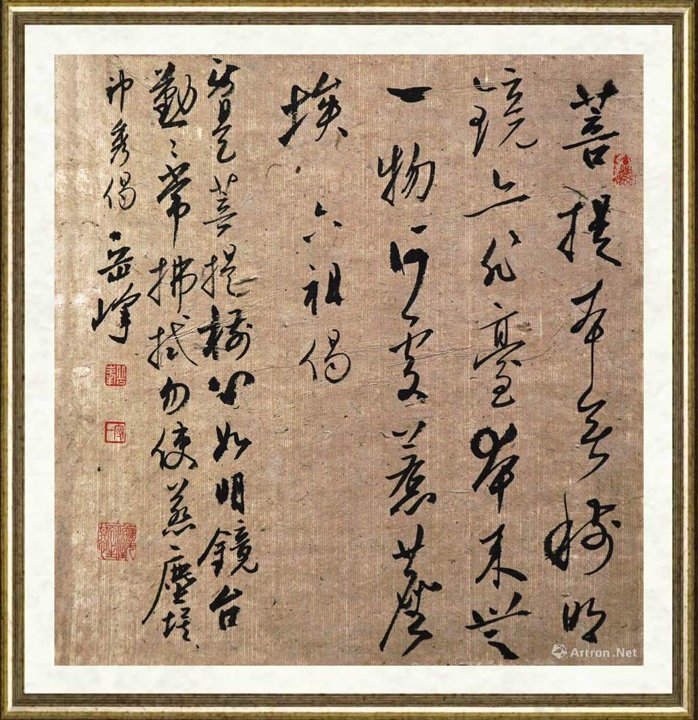 菩提本无树明
镜亦非臺本来无
一物何处惹塵
埃 六祖偈
身是菩提樹心如明鏡台
勤々常拂拭勿使惹塵埃
神秀偈 岳峰
Artron.Net